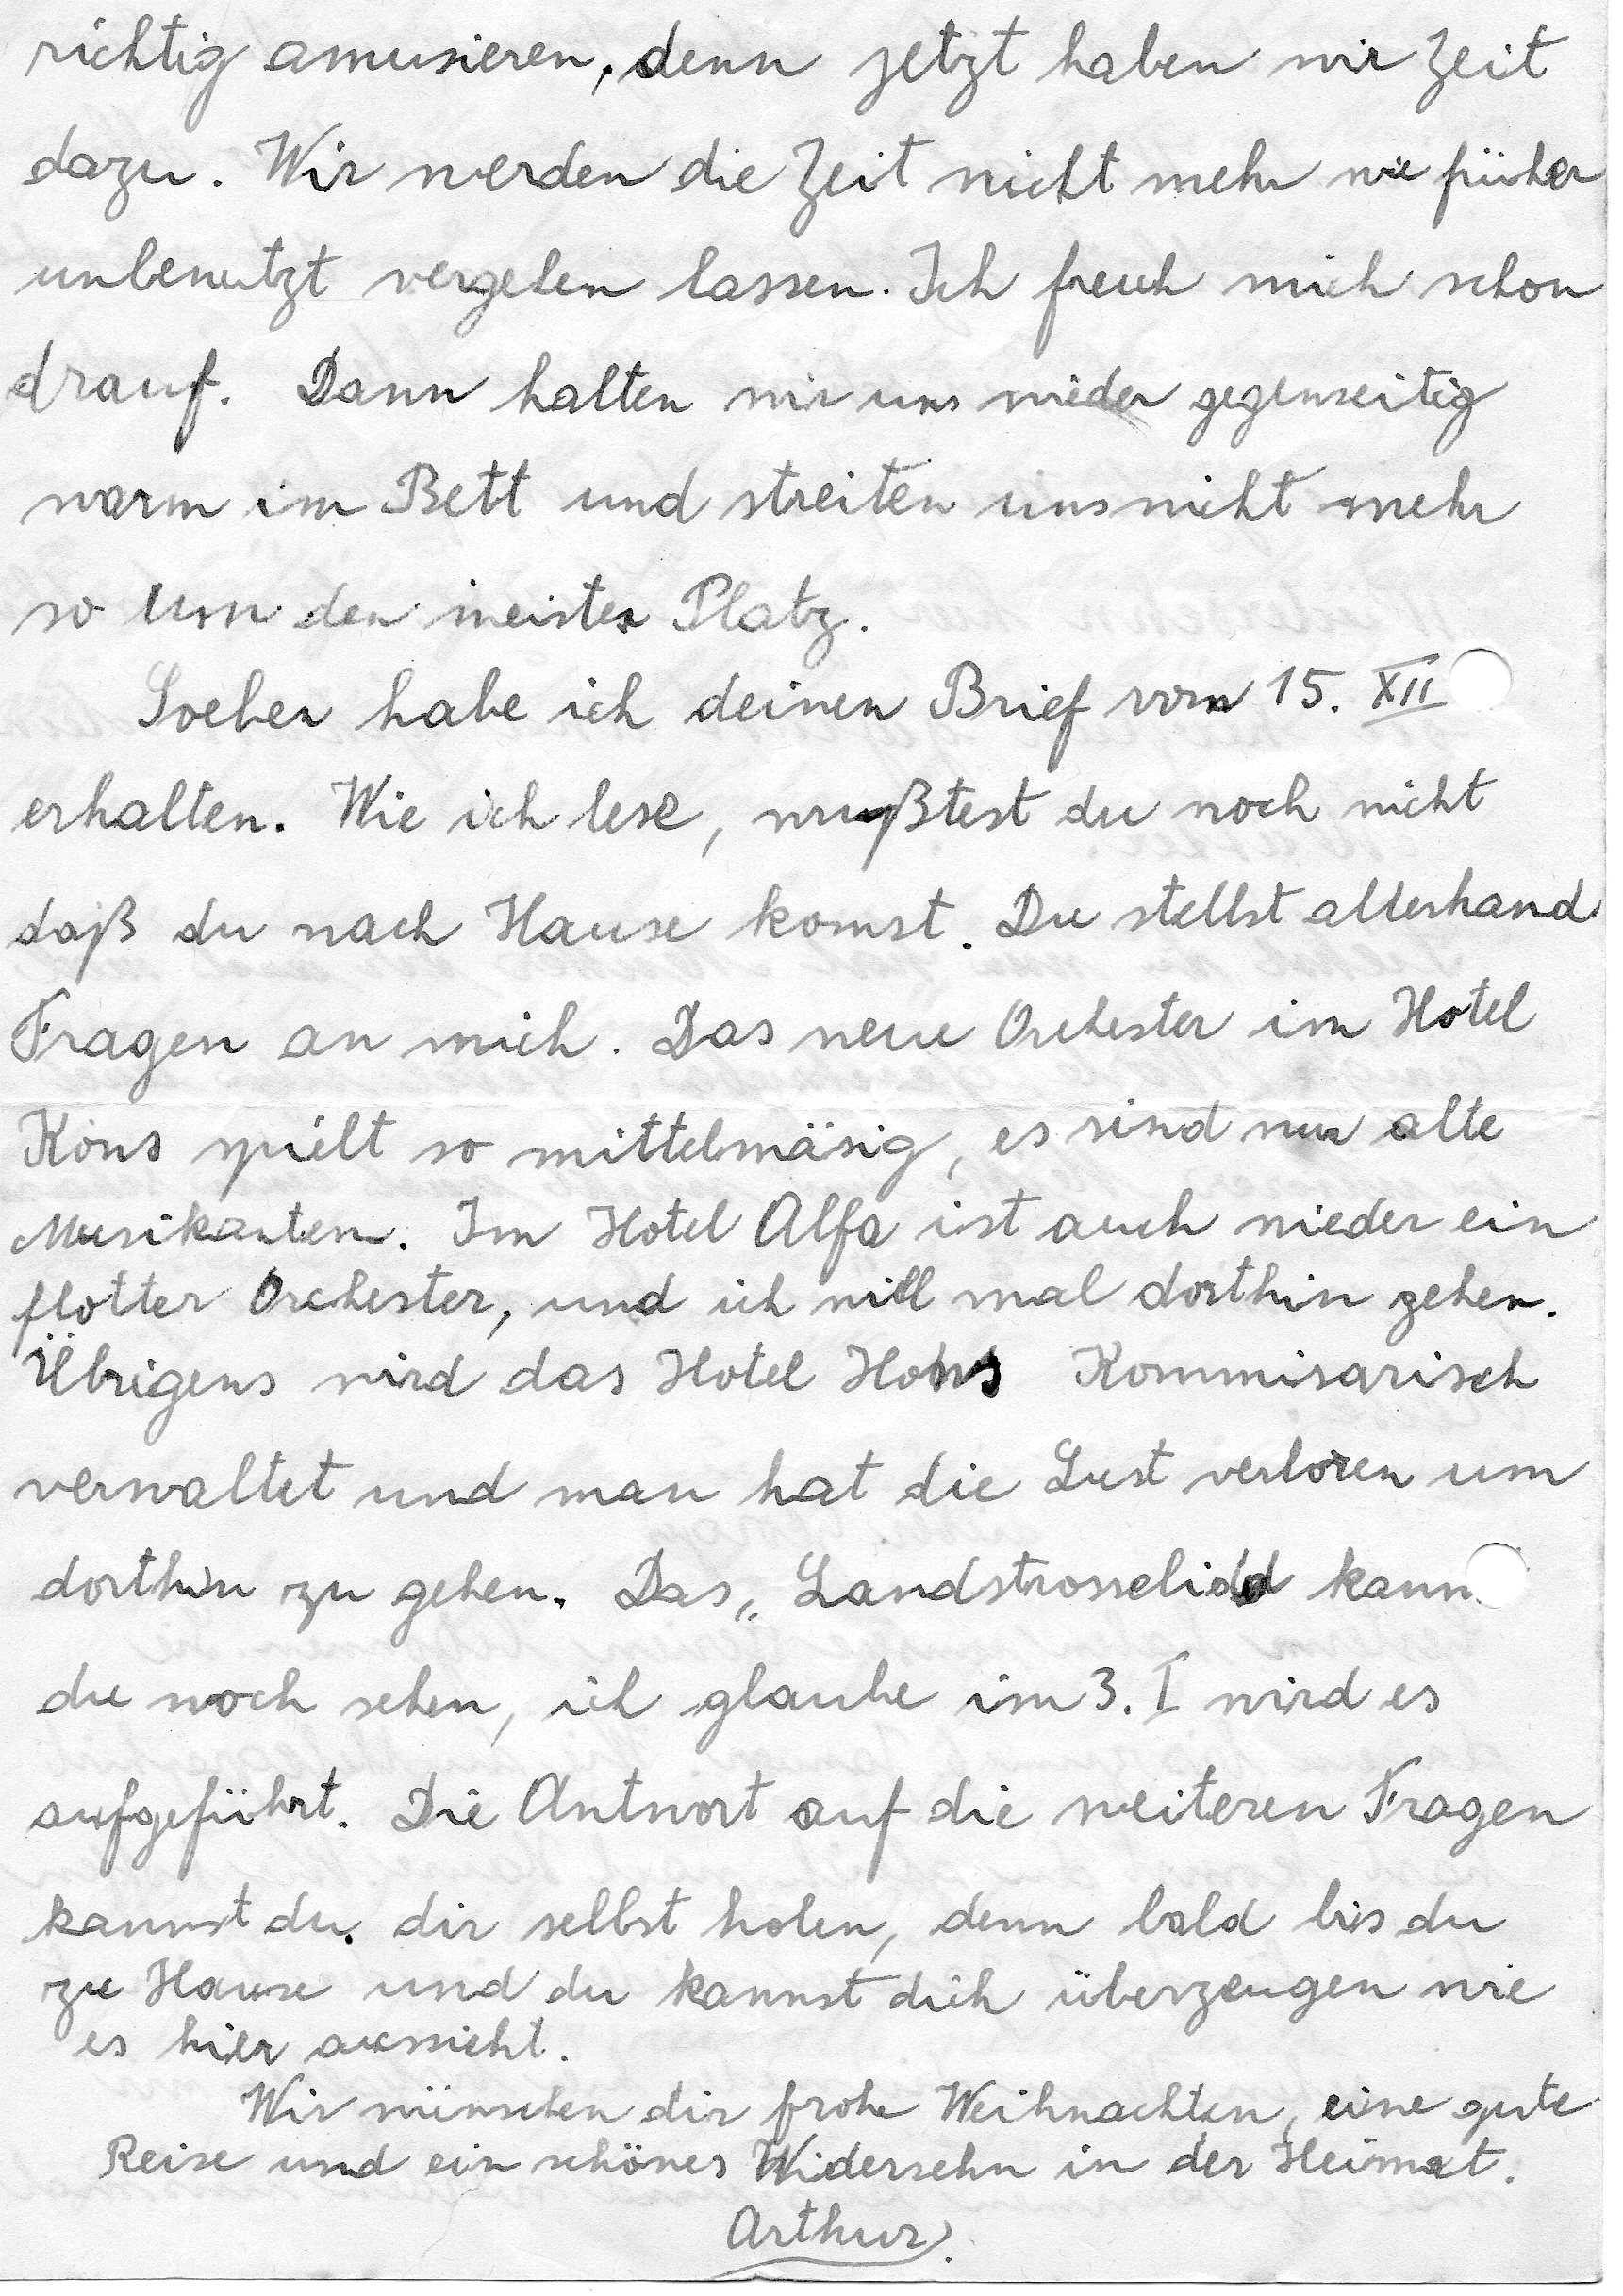 richtig amusieren, denn jetzt haben wir Zeit
dazu. Wir werden die Zeit nicht mehr wie früher
unbenutzt vergehen lassen. Ich freuh mich schon
drauf. Dann halten wir uns wieder gegenseitig
warm im Bett und streiten uns nicht mehr
so um den meisten Platz.
Soeben habe ich deinen Brief vom 15. XII
erhalten. Wie ich lese, wußtest du noch nicht
daß du nach Hause komst. Du stellst allerhand
Fragen an mich. Das neue Orchester im Hotel
Kons spielt so mittelmäsig, es sind nur alte
Musikanten. Im Hotel Alfa ist auch wieder ein
flotter Orchester, und ich will mal dorthin gehen.
Übrigens wird das Hotel Kommisarisch
verwaltet und man hat die Lust verloren um
dorthin zu gehen. Das „Landstrosselidd kann
du noch sehen, ich glaube im 3. I wird es
aufgeführt. Die Antwort auf die weiteren Fragen
kannst du dir selbst holen, denn bald bis du
zu Hause und du kannst dich überzeugen wie
es hier aussieht.
Wir wünschen dir frohe Weihnachten, eine gute
Reise und ein schönes Widersehn in der Heimat.
Arthur.